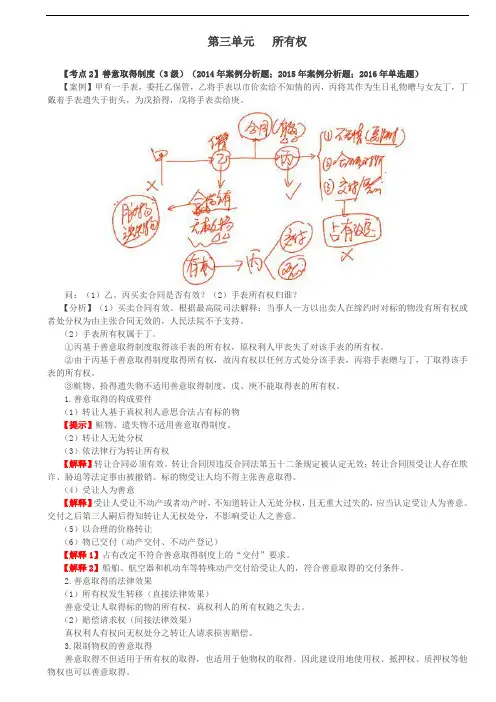 第三单元 所有权
【考点2】善意取得制度(3级)(2014年案例分析题;2015年案例分析题;2016年单选题)
【案例】甲有一手表,委托乙保管,乙将手表以市价卖给不知情的丙,丙将其作为生日礼物赠与女友丁,丁
戴着手表遗失于街头,为戊拾得,戊将手表卖给庚。
合同(有效)
甲 乙 丙
①不知情
②合理价格
③交付/登记
占有改定
有权 丙
问:(1)乙、丙买卖合同是否有效?(2)手表所有权归谁?
【分析】(1)买卖合同有效。根据最高院司法解释:当事人一方以出卖人在缔约时对标的物没有所有权或
者处分权为由主张合同无效的,人民法院不予支持。
(2)手表所有权属于丁。
①丙基于善意取得制度取得该手表的所有权,原权利人甲丧失了对该手表的所有权。
②由于丙基于善意取得制度取得所有权,故丙有权以任何方式处分该手表,丙将手表赠与丁,丁取得该手
表的所有权。
③赃物、拾得遗失物不适用善意取得制度,戊、庚不能取得表的所有权。
1.善意取得的构成要件
(1)转让人基于真权利人意思合法占有标的物
【提示】赃物、遗失物不适用善意取得制度。
(2)转让人无处分权
(3)依法律行为转让所有权
【解释】转让合同必须有效。转让合同因违反合同法第五十二条规定被认定无效;转让合同因受让人存在欺
诈、胁迫等法定事由被撤销。标的物受让人均不得主张善意取得。
(4)受让人为善意
【解释】受让人受让不动产或者动产时,不知道转让人无处分权,且无重大过失的,应当认定受让人为善意。
交付之后第三人嗣后得知转让人无权处分,不影响受让人之善意。
(5)以合理的价格转让
(6)物已交付(动产交付、不动产登记)
【解释1】占有改定不符合善意取得制度上的“交付”要求。
【解释2】船舶、航空器和机动车等特殊动产交付给受让人的,符合善意取得的交付条件。
2.善意取得的法律效果
(1)所有权发生转移(直接法律效果)
善意受让人取得标的物的所有权,真权利人的所有权随之失去。
(2)赔偿请求权(间接法律效果)
真权利人有权向无权处分之转让人请求损害赔偿。
3.限制物权的善意取得
善意取得不但适用于所有权的取得,也适用于他物权的取得。因此建设用地使用权、抵押权、质押权等他
物权也可以善意取得。